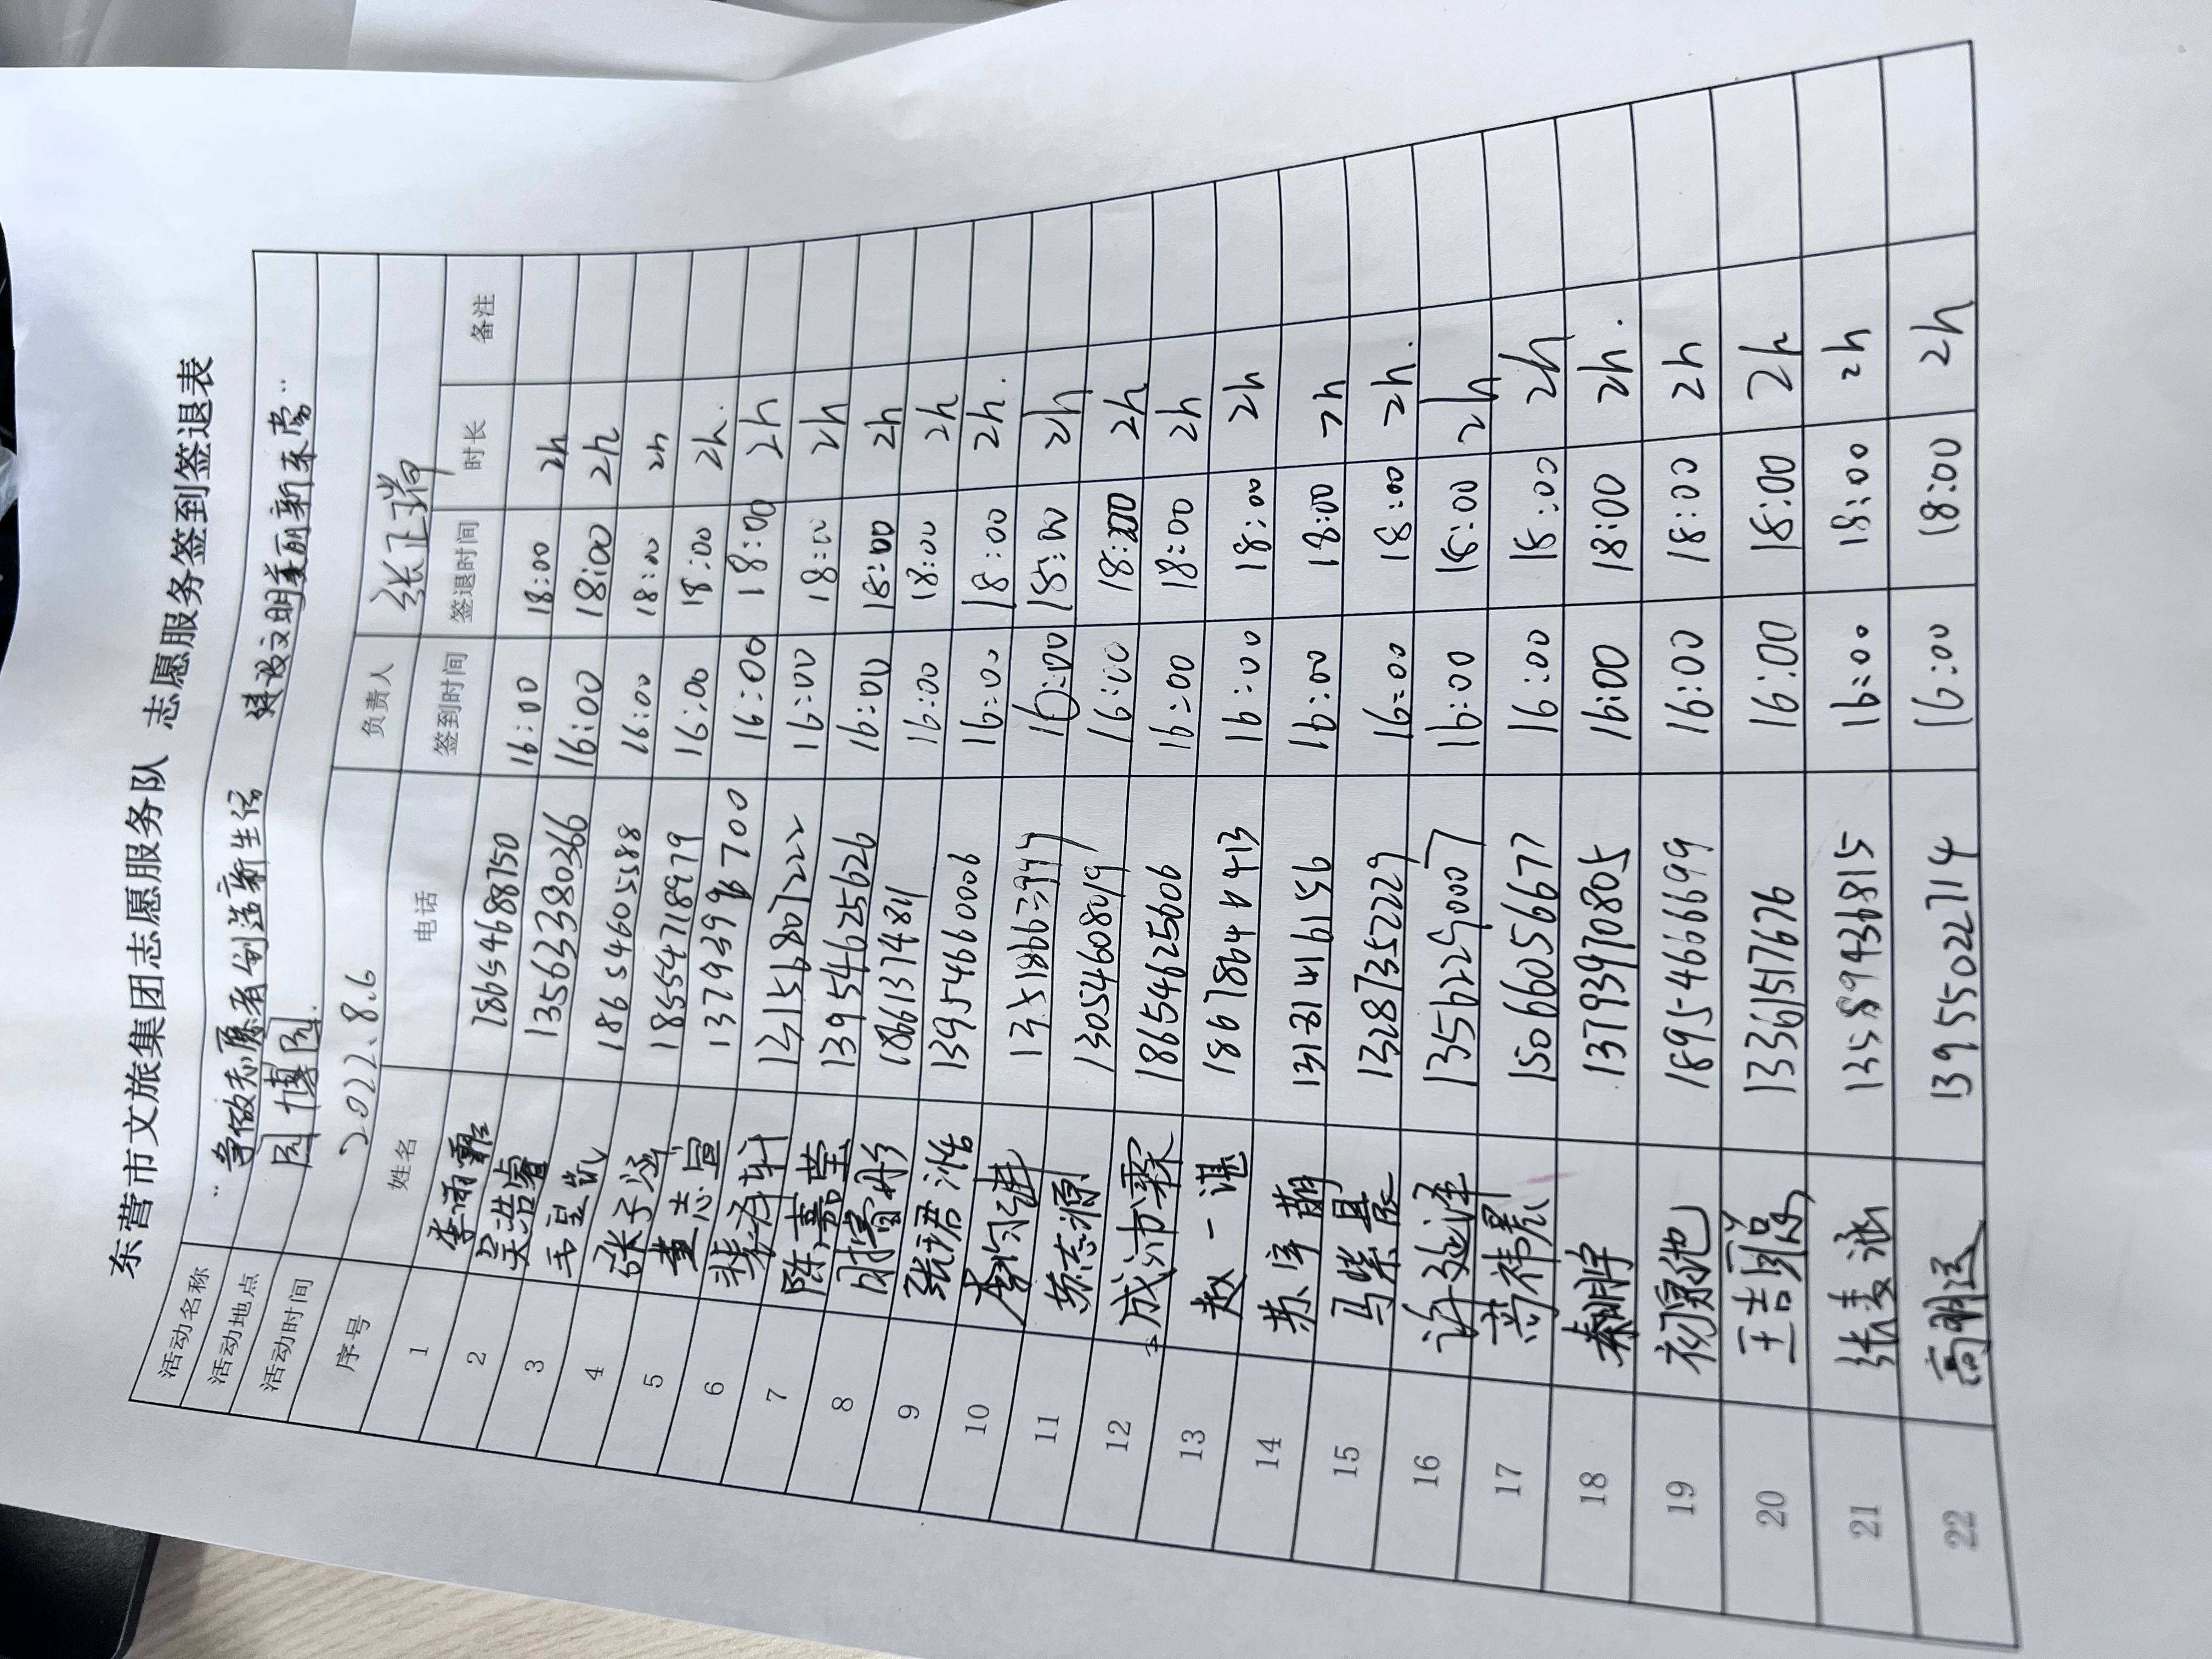 东营市文旅集团志愿服务队 志愿服务签到签退表
活动名称 “争做志愿者创造新生活 建设文明美丽新东营”
活动地点 园博园
活动时间 2022.8.6 负责人 张正瑞
序号 姓名 电话 签到时间 签退时间 时长 备注
1 李雨霏 18654688750 16:00 18:00 2h
2 吴浩睿 13563380366 16:00 18:00 2h
3 王昱凯 18654605588 16:00 18:00 2h
4 张子涵 18554718979 16:00 18:00 2h.
5 董志宣 16:00 18:00 2h
6 裴存轩 13156807222 16:00 18:00 2h
7 陈嘉莹 13954625626 16:00 18:00 2h
8 周睿彤 18661374811 16:00 18:00 2h
9 张君浩 13954660006 16:00 18:00 2h.
10 16:00 18:00 2h
11 苏志源 13054608019 16:00 18:00 2h
12 成沛霖 18654625606 16:00 18:00 2h
13 赵一谌 16:00 18:00 2h
14 苏宇萌 16:00 18:00 2h
15 马紫晨 13287352229 16:00 18:00 2h.
16 许延泽 13562290007 16:00 18:00 2h
17 尚祎宸 15066056677 16:00 18:00 2h
18 秦明宇 13793970805 16:00 18:00 2h.
19 初原弛 18954666699 16:00 18:00 2h
20 王吉 13361517676 16:00 18:00 2h
21 张麦涵 13589436815 16:00 18:00 2h
22 高明 13955022714 16:00 18:00 2h